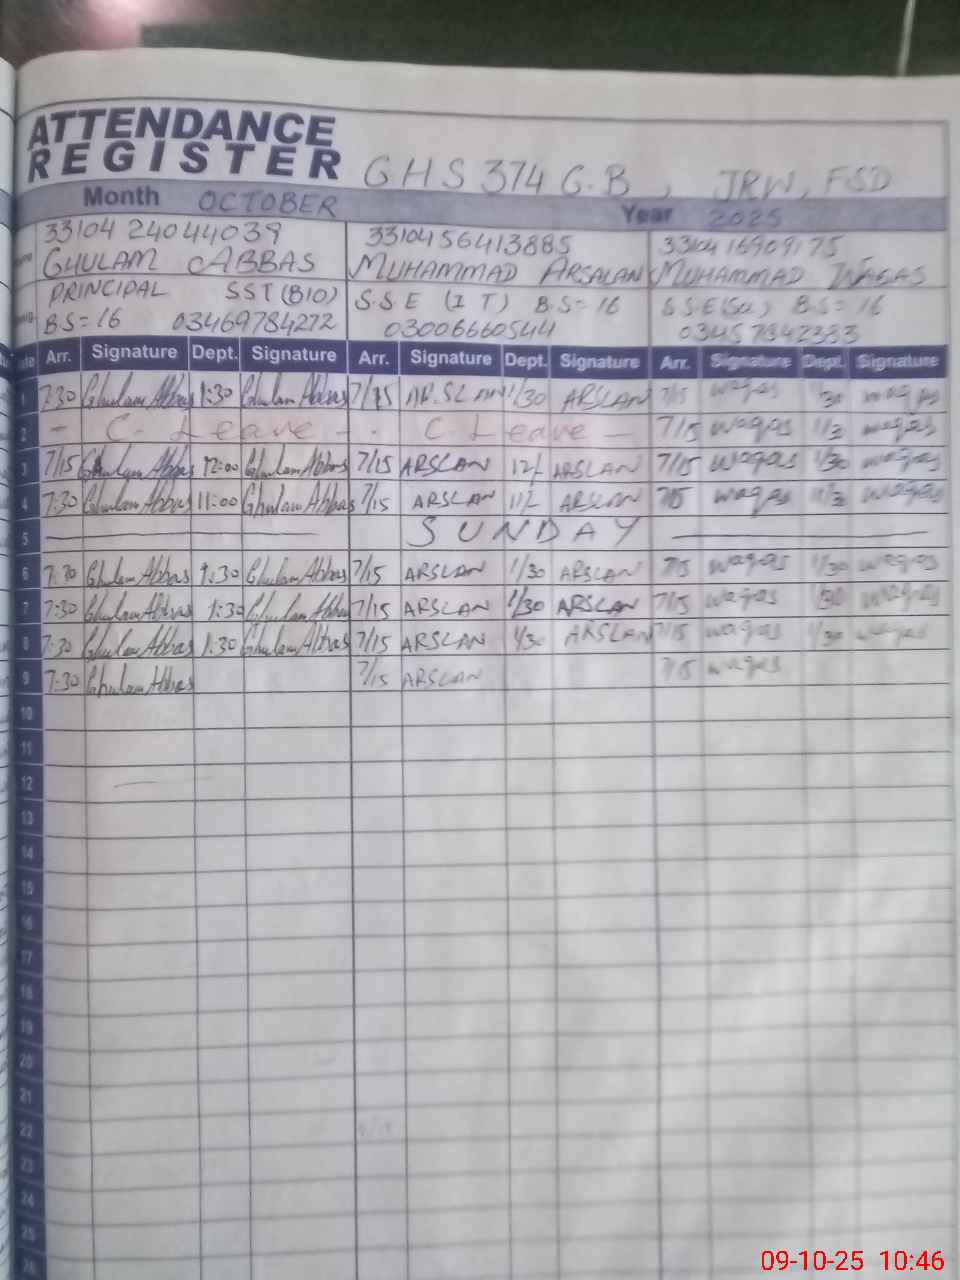 ATTENDANCE
REGISTER GHS 374 G.B, JRW, FSD
Month OCTOBER Year 2025
33104 24044039 3310456413885 33104 16909175
GHULAM ABBAS MUHAMMAD ARSALAN MUHAMMAD WAQAS
PRINCIPAL SST (BIO) S.S.E (I T) B.S=16 S.S.E(Sci) B.S=16
B.S=16 03469784272 03006660544 03457842383
Arr. Signature Dept. Signature Arr. Signature Dept. Signature Arr. Signature Dept. Signature
1 7:30 Ghulam Abbas 1:30 Ghulam Abbas 7/15 ARSLAN 1/30 ARSLAN 7/15 waqas 1/30 waqas
2 - C. Leave - - C. Leave - 7/15 waqas waqas
3 7/15 Ghulam Abbas 12:00 Ghulam Abbas 7/15 ARSLAN 12/- ARSLAN 7/15 waqas 1/30 waqas
4 7:30 Ghulam Abbas 11:00 Ghulam Abbas 7/15 ARSLAN 11/- ARSLAN 7/15 waqas waqas
5 SUNDAY
6 7:30 Ghulam Abbas 1:30 Ghulam Abbas 7/15 ARSLAN 1/30 ARSLAN 7/15 waqas 1/30 waqas
7 7:30 Ghulam Abbas 1:30 Ghulam Abbas 7/15 ARSLAN 1/30 ARSLAN 7/15 waqas 1/30 waqas
8 7:30 Ghulam Abbas 1:30 Ghulam Abbas 7/15 ARSLAN 1/30 ARSLAN 7/15 waqas 1/30 waqas
9 7:30 Ghulam Abbas 7/15 ARSLAN 7/15 waqas
10
11
12
13
14
15
16
17
18
19
20
21
22
23
24
25
26
09-10-25 10:46